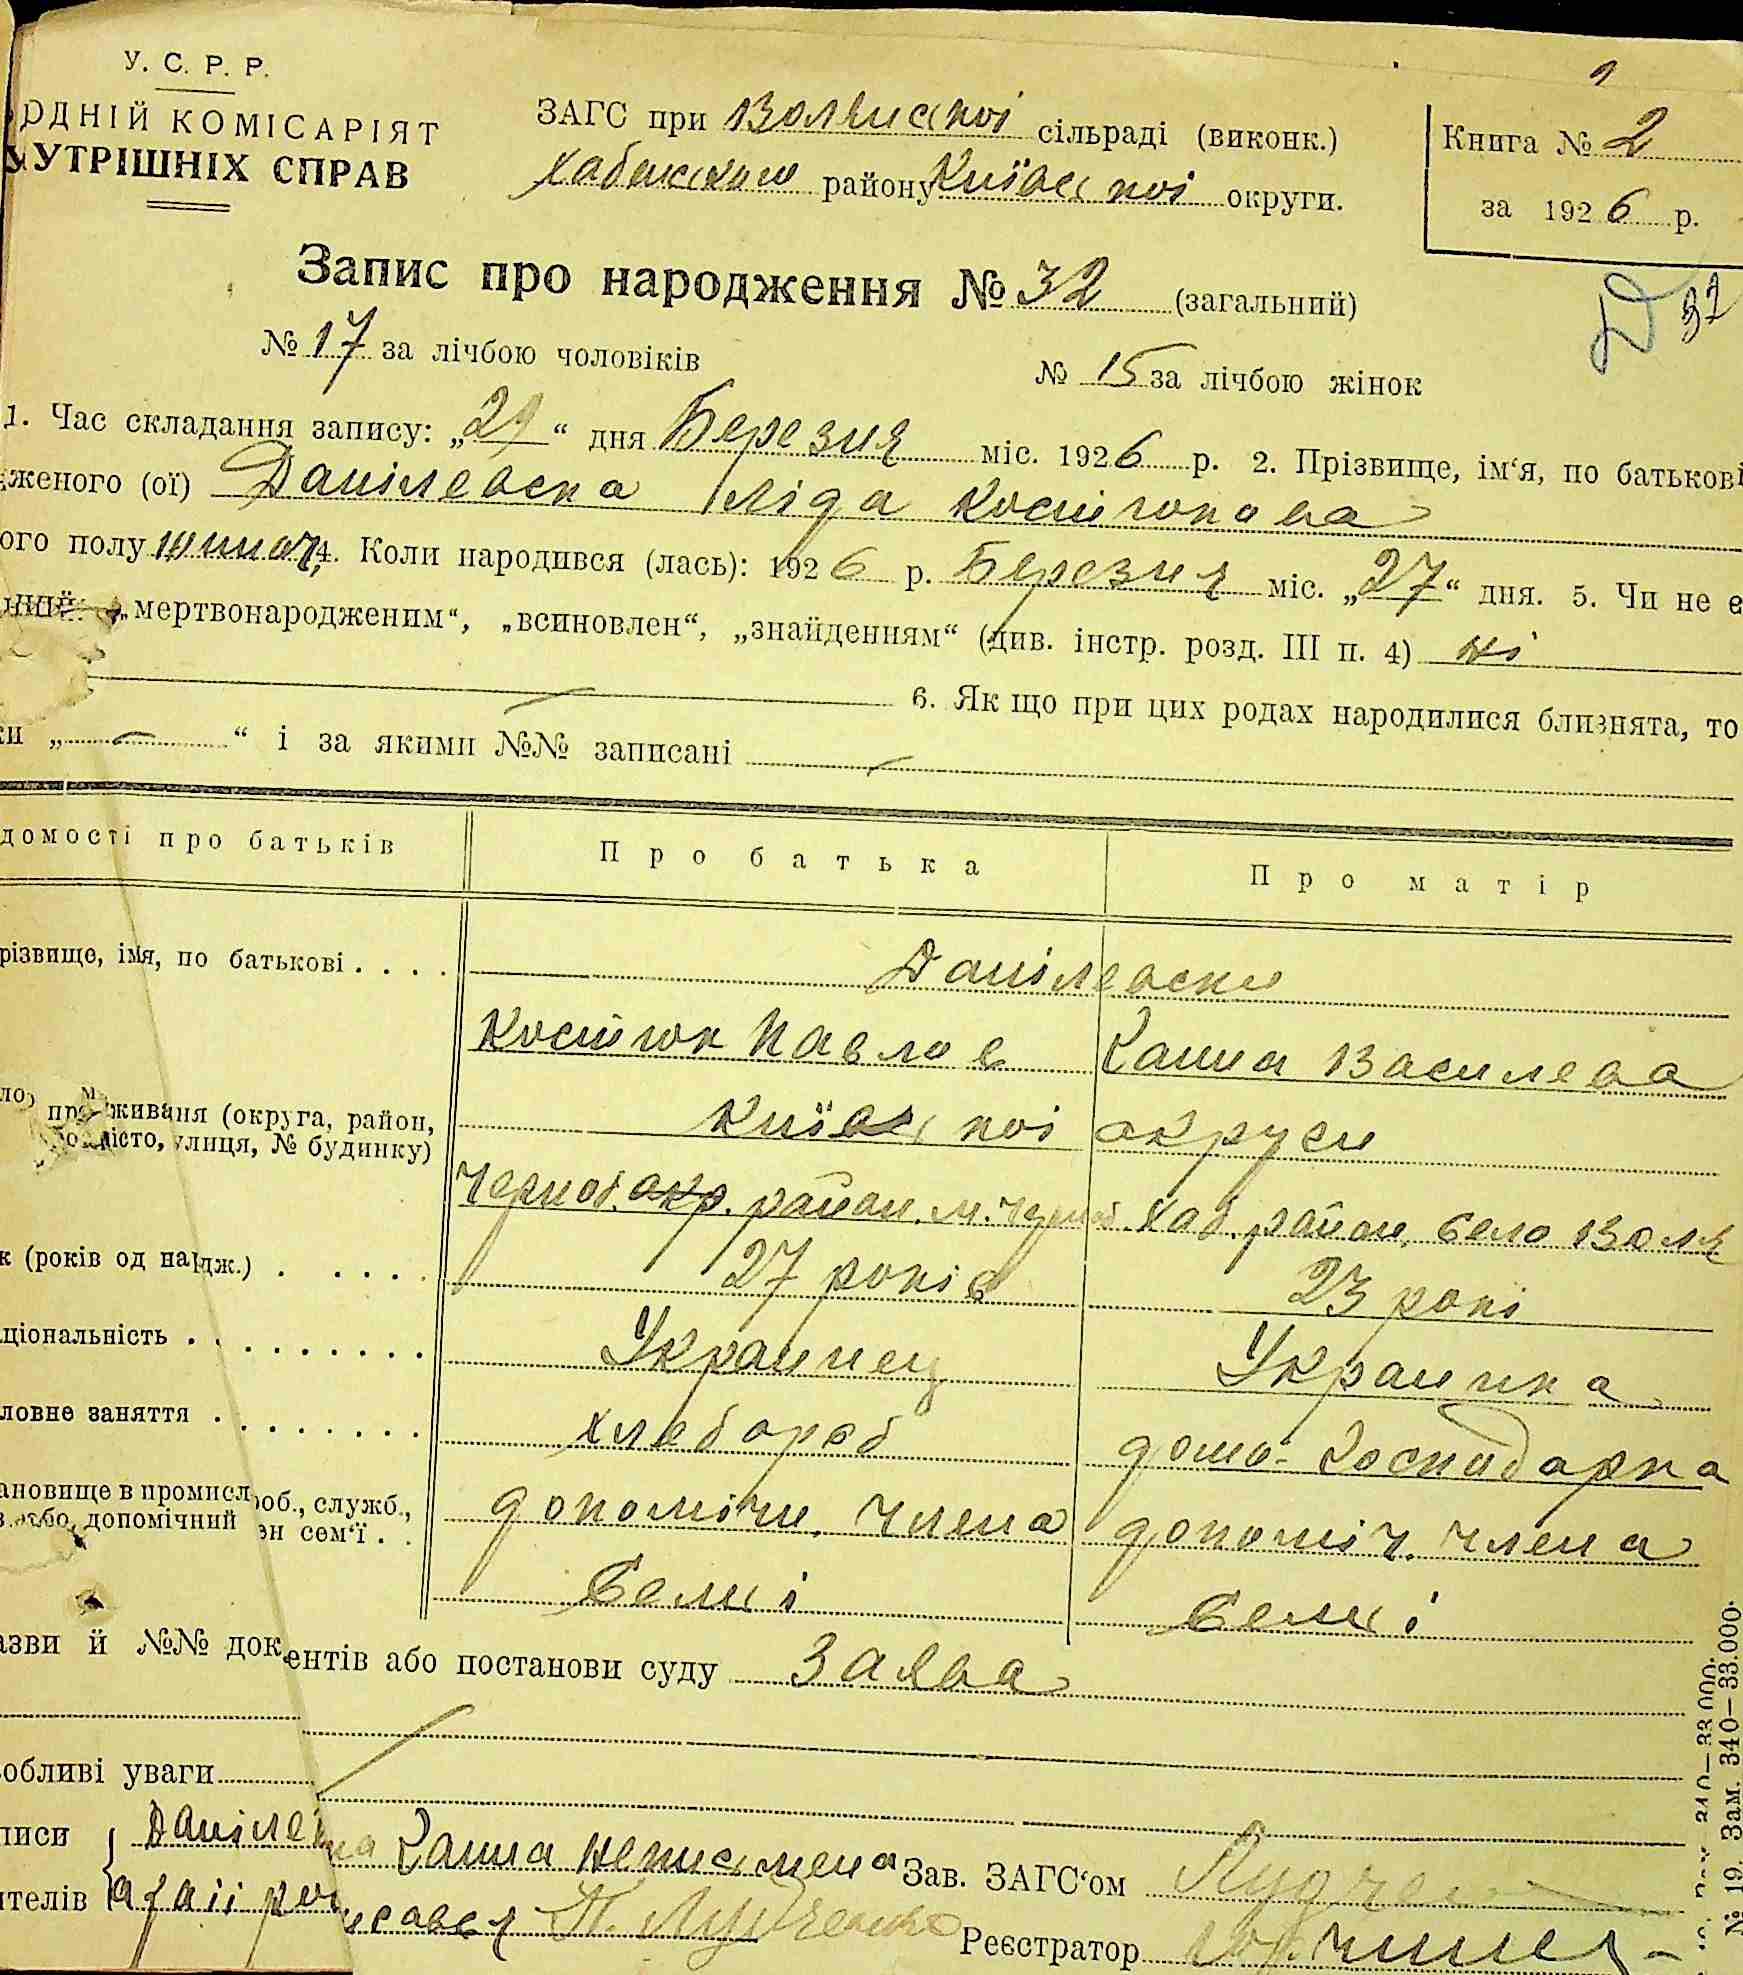 У. С. Р. Р.
ОДНІЙ КОМІСАРІЯТ
УТРІШНІХ СПРАВ
ЗАГС при Волянської сільраді (виконк.)
Хабенского району Київської округи.
Книга № 2
за 1926 р.
Запис про народження № 32 (загальний)
32
№ 17 за лічбою чоловіків № 15 за лічбою жінок
1. Час складання запису: „29“ дня Березня міс. 1926 р. 2. Прізвище, ім'я, по батькові
дженого (ої) Данілевска Ліда Костюкова
ого полу жіноч. 4. Коли народився (лась): 1926 р. Березня міс. „27“ дня. 5. Чи не є
„мертвонародженим“, „всиновлен“, „знайденням“ (див. інстр. розд. III п. 4) ні
6. Як що при цих родах народилися близнята, то
ки „ “ і за якими №№ записані
домості про батьків Про батька Про матір
різвище, імя, по батькові . . . . Данілевски
Костюк Павлов Ганна Василева
проживаня (округа, район,
місто, улиця, № будинку) Київської округи
Черноб. окр. район. м. Чорноб. Хаб. район, село Воля
к (років од нардж.) . . . . . 27 років 23 рокі
ціональність . . . . . . . . . . Украинец Украинка
ловне заняття . . . . . . . . . хлебороб домо-господарка
ановище в промисл роб., служб.,
або допомічний ен сем'ї . . допомічн. члена допоміч. члена
семьі семьі
азви й №№ документів або постанови суду Заява
обливі уваги
писи Данілевска Ганна неписьмена Зав. ЗАГС'ом
ителів а за іі росписався П. Лудченко Реєстратор
№ 19. Зам. 340—33.000.